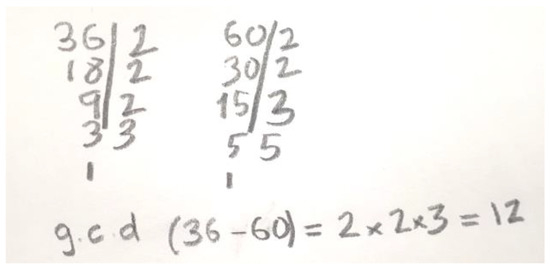 36 | 2 60 | 2
18 | 2 30 | 2
9 | 2 15 | 3
3 3 5 5
1 1
g.c.d (36-60) = 2×2×3 = 12